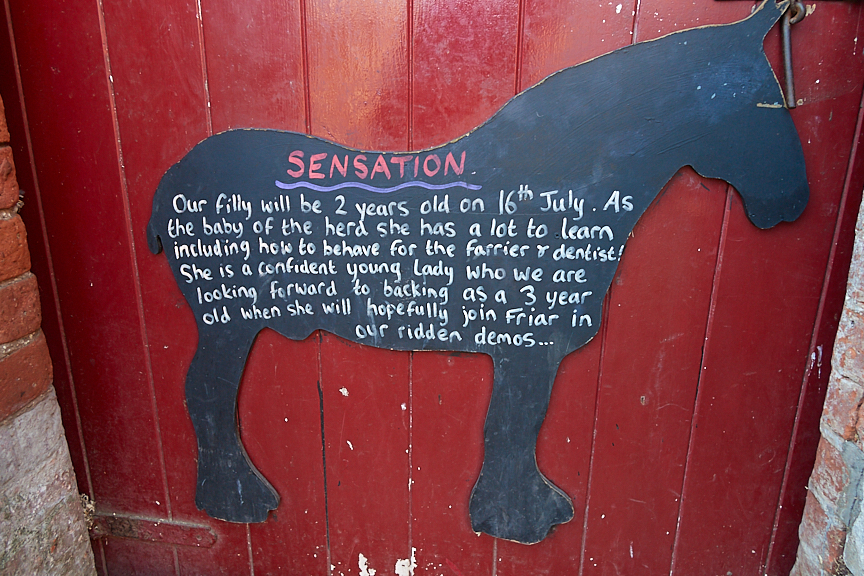 SENSATION
Our filly will be 2 years old on 16th July. As
the baby of the herd she has a lot to learn
including how to behave for the farrier & dentist!
She is a confident young Lady who we are
looking forward to backing as a 3 year
old when she will hopefully join Friar in
our ridden demos...